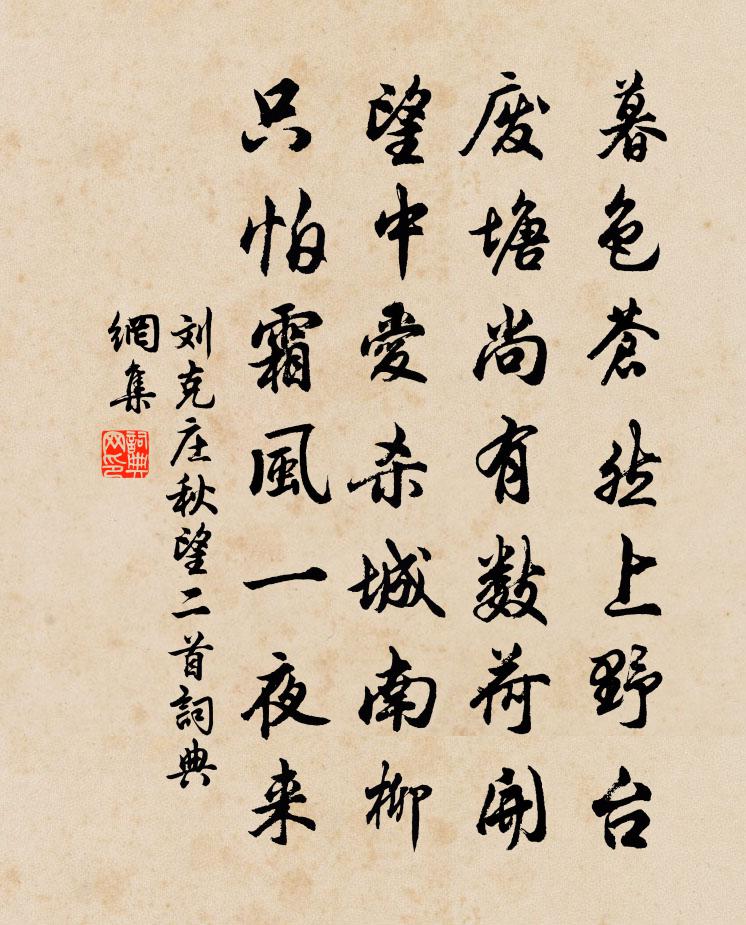 暮色蒼然上野台
废塘尚有数荷開
望中愛杀城南柳
只怕霜風一夜来
刘克庄秋望二首詞典
網集
詞典
网印